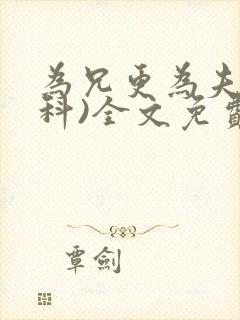 為兄更為夫
科)全文免費
覃劍